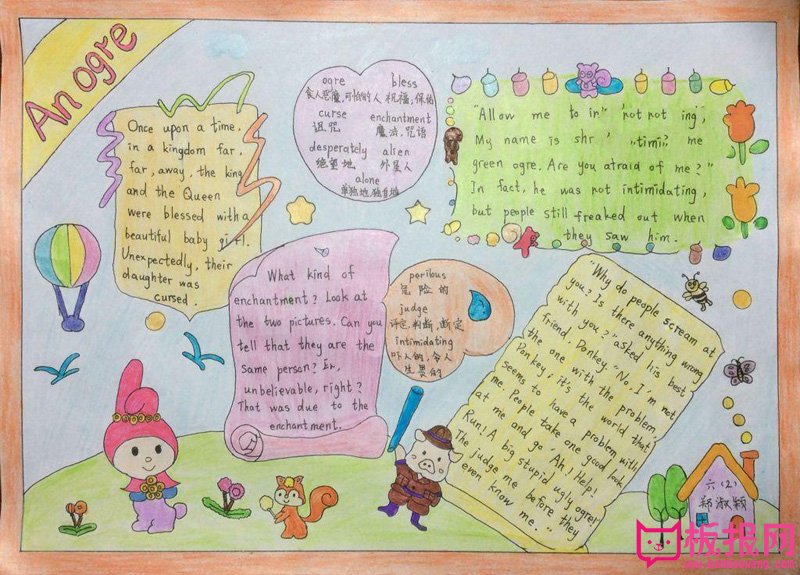 An ogre
Once upon a time,
in a kingdom far,
far, away, the king
and the Queen
were blessed with a
beautiful baby girl.
Unexpectedly, their
daughter was
cursed.
ogre bless
食人恶魔,可怕的人 祝福,保佑
curse enchantment
诅咒 魔法,咒语
desperately alien
绝望地 外星人
alone
单独地,独自地
"Allow me to in" 'not not ing',
My name is shr' "timi," me
green ogre. Are you afraid of me?"
In fact, he was not intimidating,
but people still freaked out when
they saw him.
What kind of
enchantment? Look at
the two pictures. Can you
tell that they are the
same person? Eh,
unbelievable, right?
That was due to the
enchantment.
parilous
危险的
judge
评定,判断,断定
intimidating
吓人的,令人
生畏的
"Why do people scream at
you? Is there anything wrong
with you?" asked his best
friend, Donkey. "No. I'm not
the one with the problem,
Donkey, it's the world that
seems to have a problem with
me. People take one good look
at me and go 'Ah! Help!
Run! A big stupid ugly ogre!'
The judge me before they
even know me."
六(2)
郑淑颖
板报网